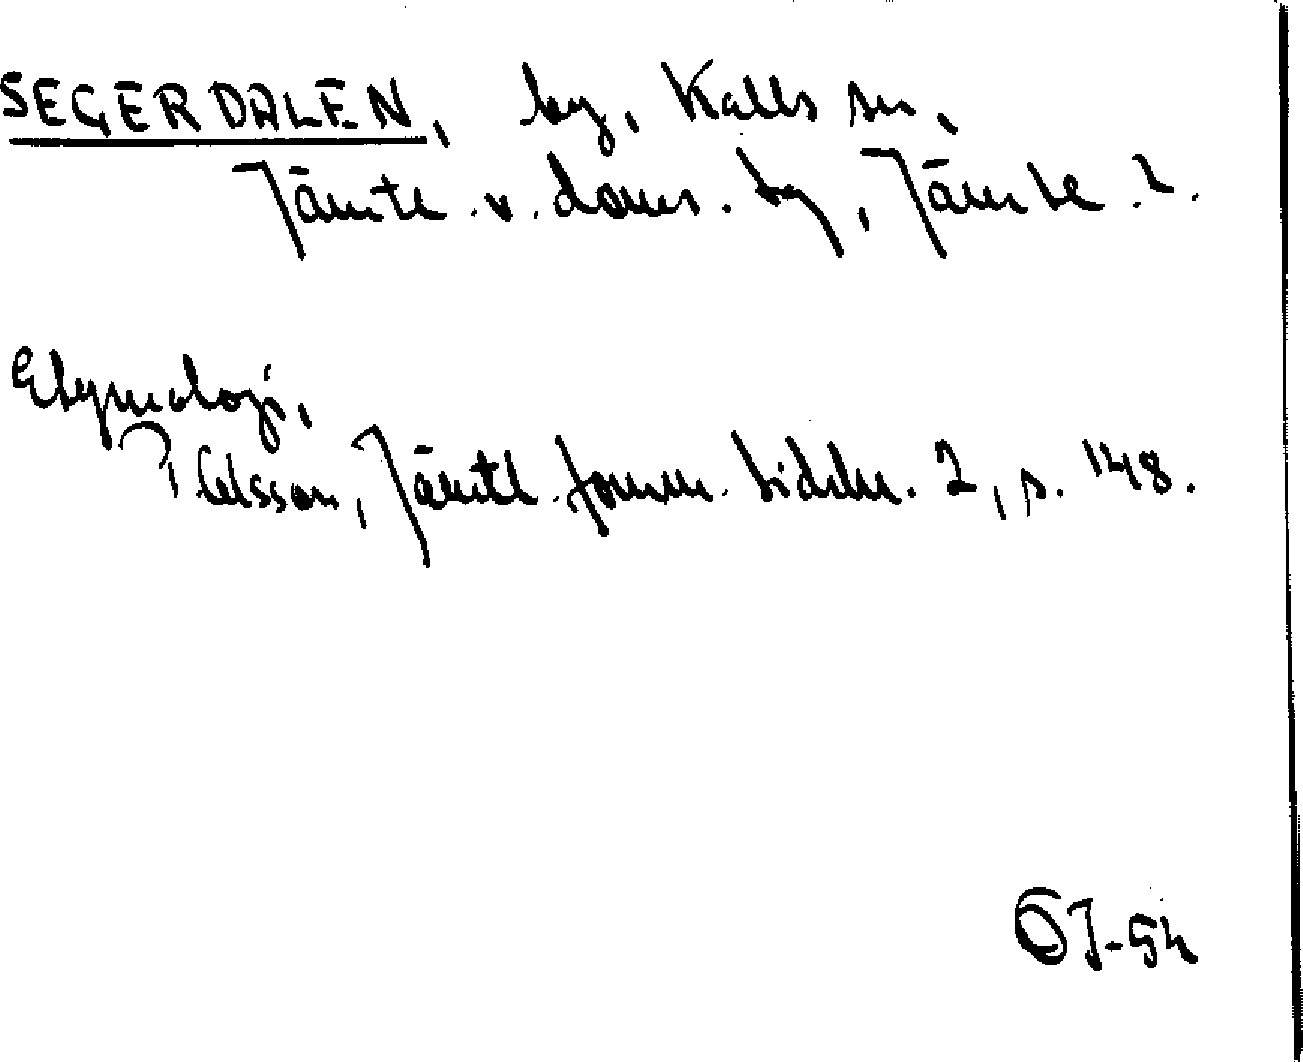 SEGERDALEN, by, Kalls sn,
Jämtl. v. doms. by, Jämtl. l.
Etymologi,
P. Olsson, Jämtl. fornm. tidskr. 2, s. 148.
ÖJ-54